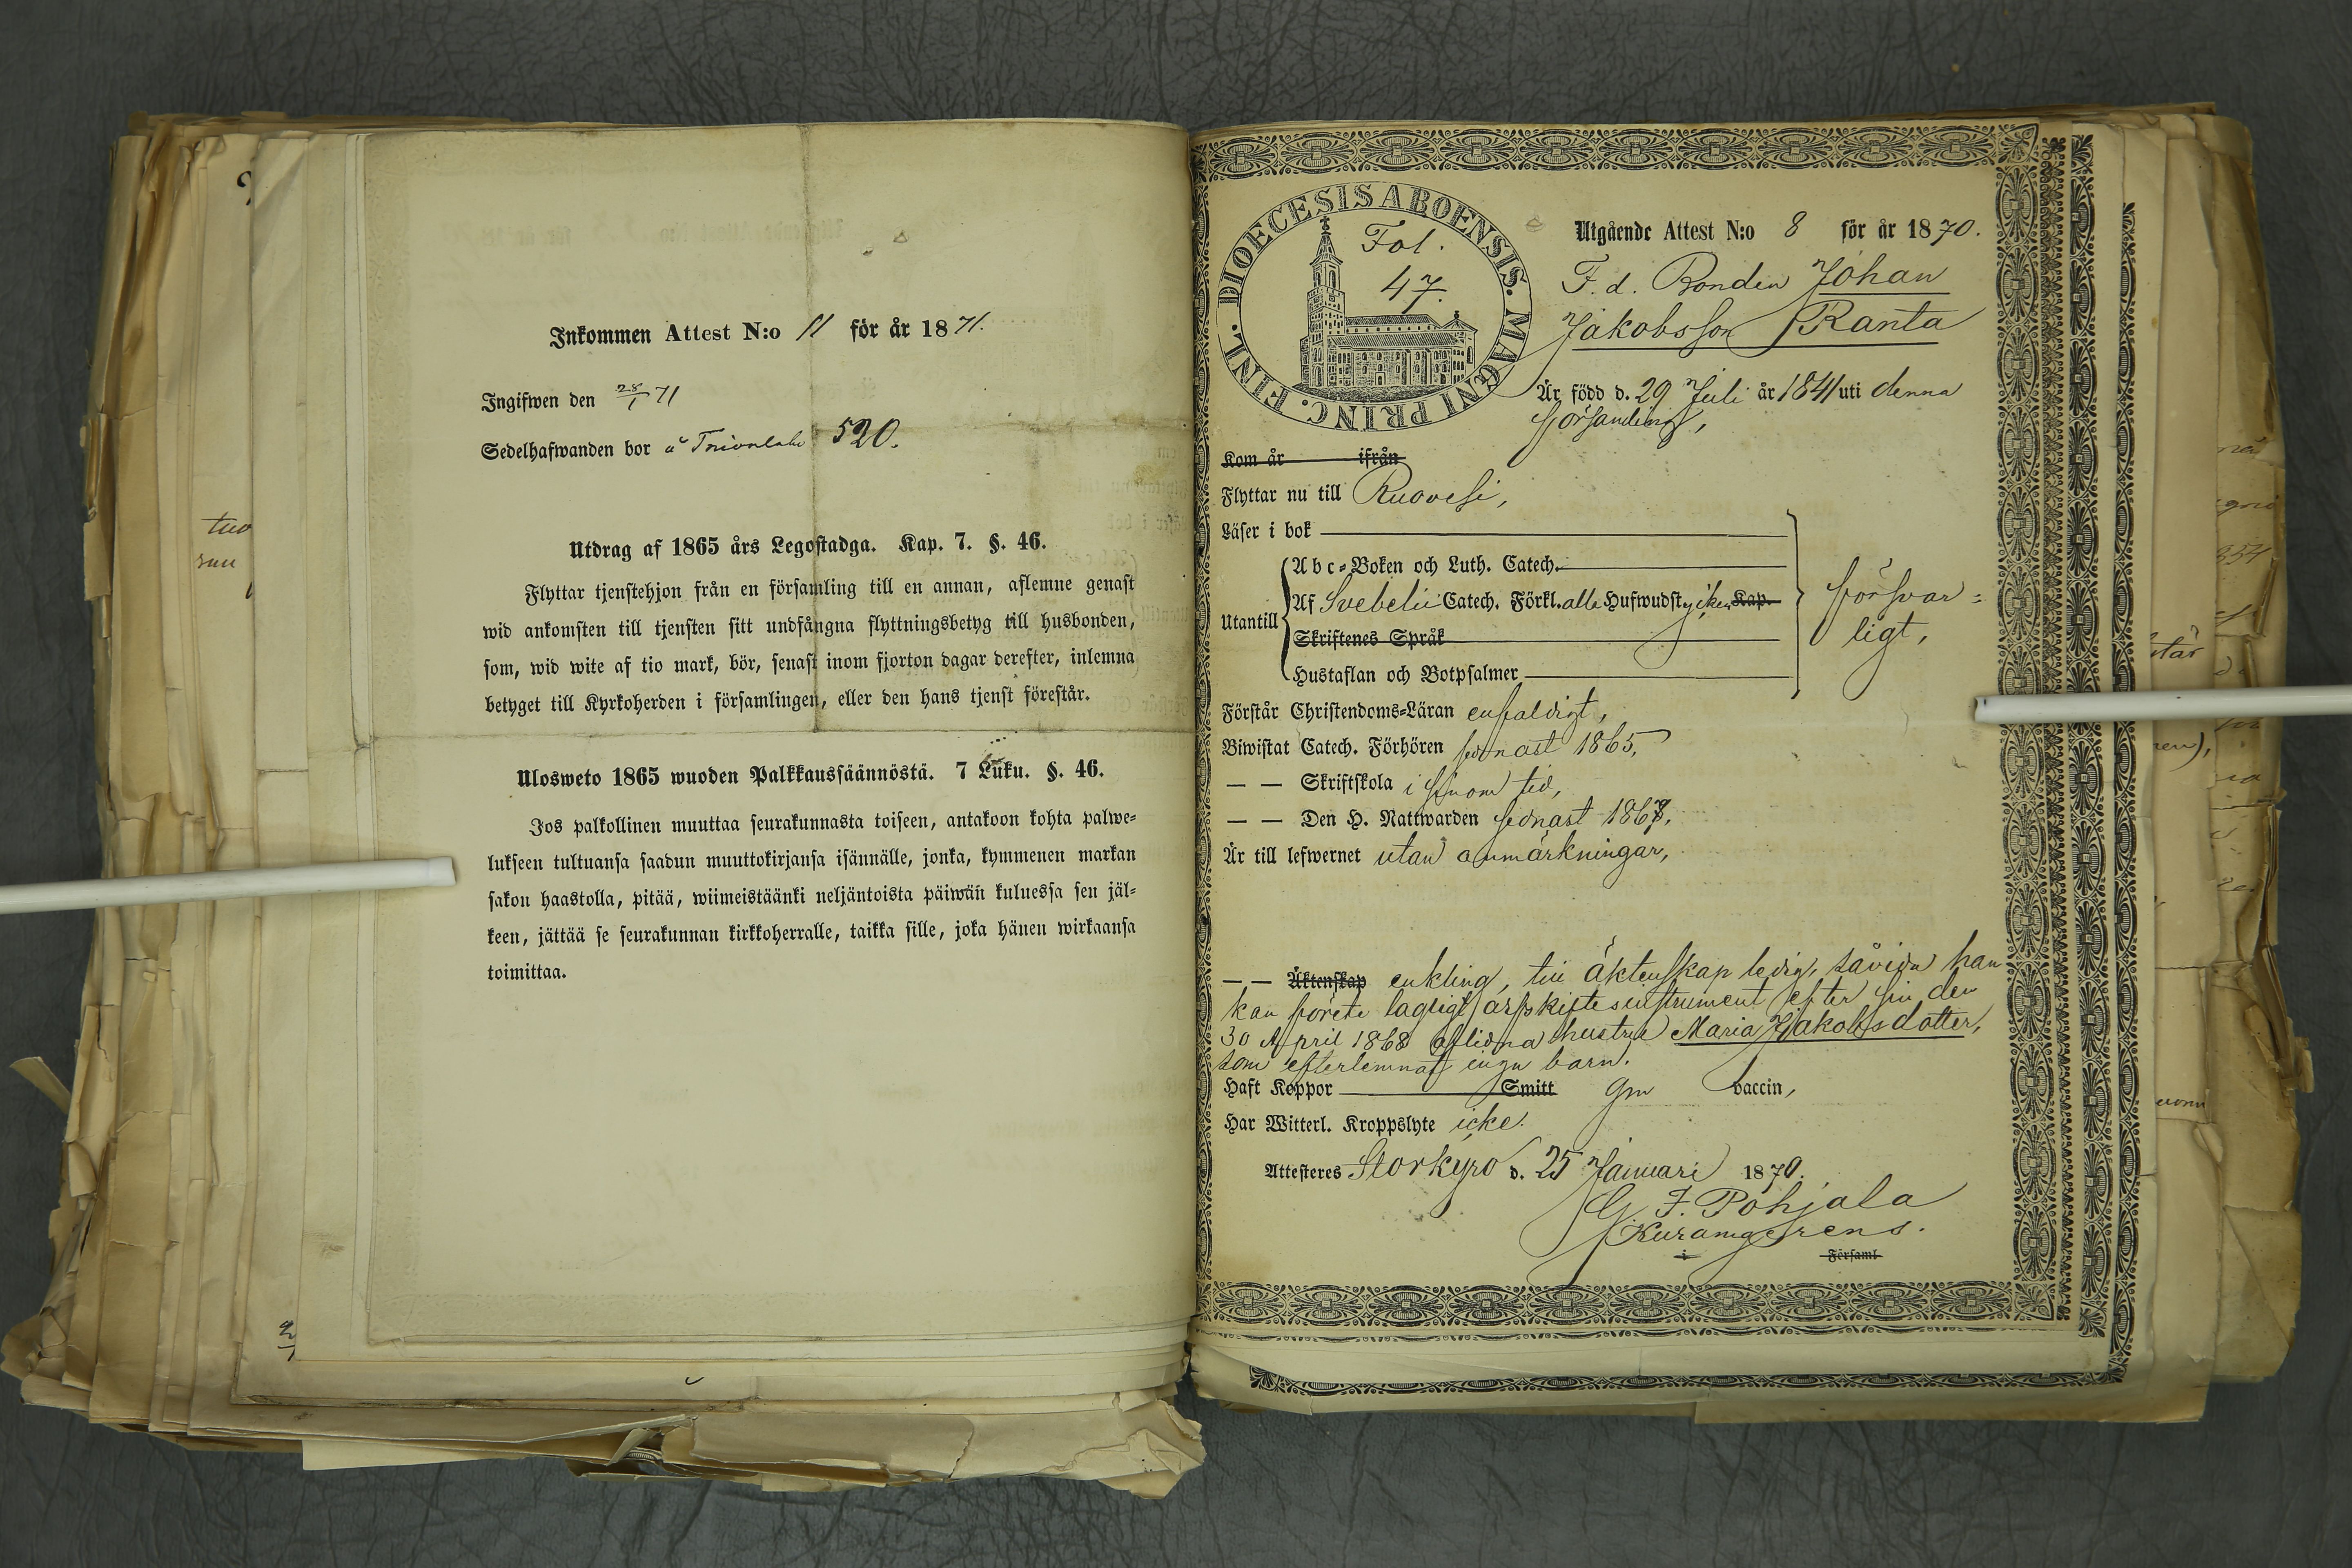 Inkommen Attest N:o 11 för år 1871.
Ingifwen den 28/1 71
Sedelhafwanden bor å 520.
Utdrag af 1865 års Legostadga. Kap. 7. §. 46.
Flyttar tjenstehjon från en församling till en annan, aflemne genast
wid ankomsten till tjensten sitt undfångna flyttningsbetyg till husbonden,
som, wid wite af tio mark, bör, senast inom fjorton dagar derefter, inlemna
betyget till Kyrkoherden i församlingen, eller den hans tjenst förestår.
Ulosweto 1865 wuoden Palkkaussäännöstä. 7 Luku. §. 46.
Jos palkollinen muuttaa seurakunnasta toiseen, antakoon kohta palwe-
lukseen tultuansa saadun muuttokirjansa isännälle, jonka, kymmenen markan
sakon haastolla, pitää, wiimeistäänki neljäntoista päiwän kuluessa sen jäl-
keen, jättää se seurakunnan kirkkoherralle, taikka sille, joka hänen wirkaansa
toimittaa.
DIOECESIS ABOENSIS. MAGNI PRINC. FINL.
Fol.
47.
Utgående Attest N:o 8 för år 1870.
F. d. Bonden Johan
Jakobsson Ranta
Är född d. 29 Juli år 1841 uti denna
församling,
Kom år ifrån
Flyttar nu till Ruovesi,
Läser i bok
Abc-Boken och Luth. Catech.
Utantill
Af Svebelii Catech. Förkl. alla Hufwudstycken Kap.
Skriftenes Språk
Hustaflan och Botpsalmer
försvar=
ligt,
Förstår Christendoms-Läran enfaldigt,
Biwistat Catech. Förhören sednast 1865,
— — Skriftskola i sinom tid,
— — Den H. Nattwarden sednast 1867.
Är till lefwernet utan anmärkningar,
— — Äktenskap enkling, till äktenskap ledig, såvida han
kan förete lagligt arfskiftesinstrument efter sin den
30 April 1868 aflidna hustru Maria Jakobsdotter,
som efterlemnat inga barn.
Haft Koppor Smitt gm vaccin,
Har Witterl. Kroppslyte icke.
Attesteras Storkyro d. 25 Januari 1870.
G. F. Pohjala
Kuramgerens.
i Församl.